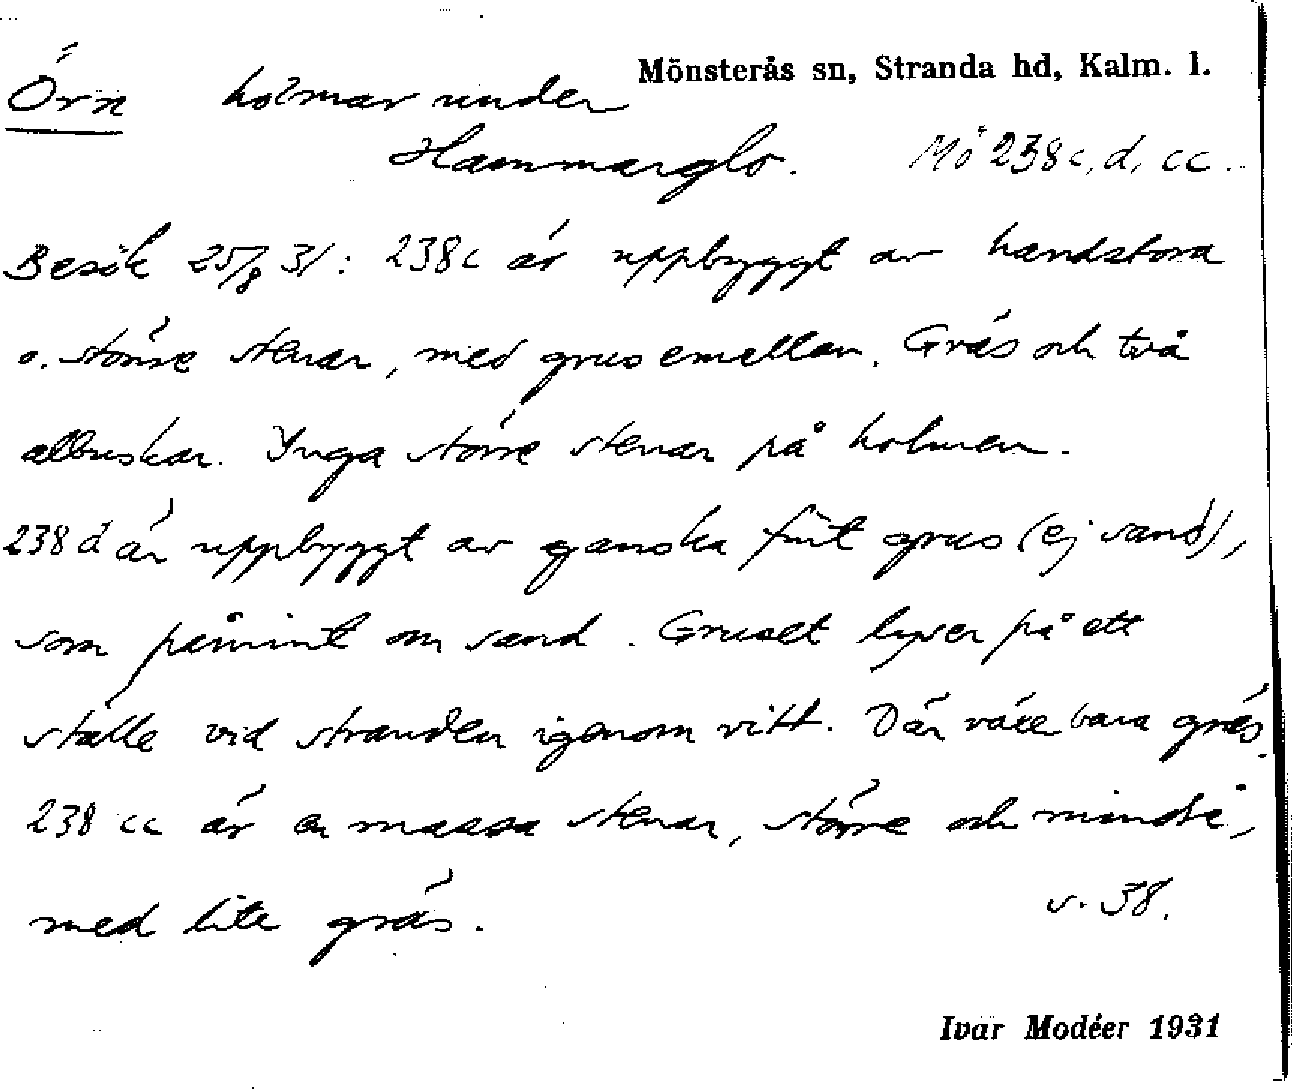 Mönsterås sn, Stranda hd, Kalm. l.
Örn holmar under
Hammarglo. Mö 238 c, d, cc.
Besök 25/8 31: 238c är uppbyggt av handstora
o. större stenar, med grus emellan. Gräs och två
albuskar. Inga större stenar på holmen.
238 d är uppbyggt av ganska fint grus (ej sand),
som påmint om sand. Gruset lyser på ett
ställe vid stranden igenom vitt. Där växe bara gräs.
238 cc är en massa stenar, större och mindre,
med lite gräs. s. 38.
Ivar Modéer 1931